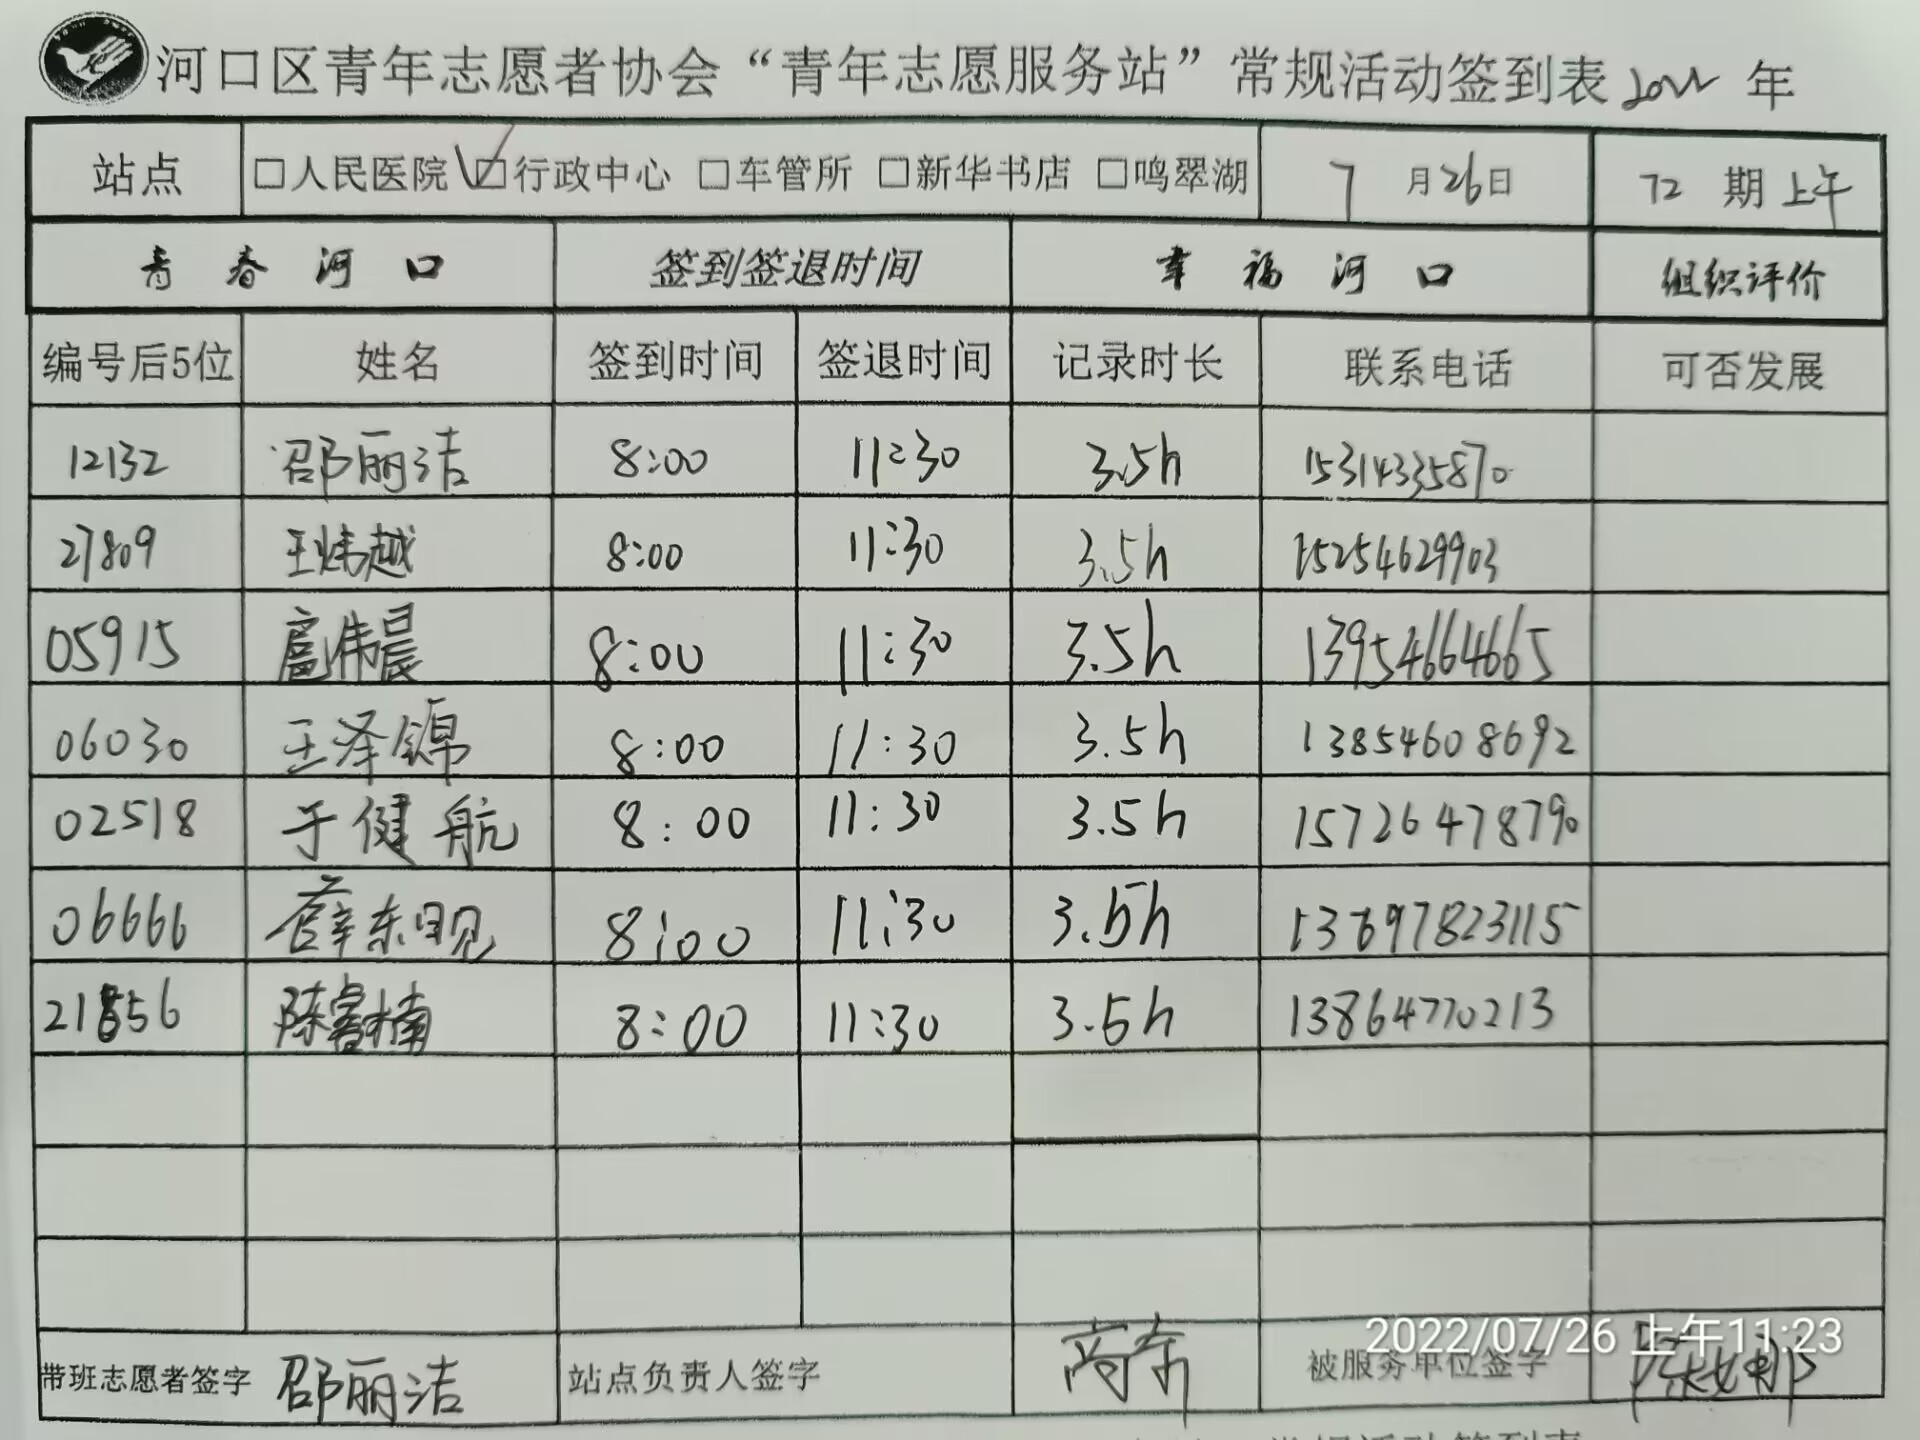 河口区青年志愿者协会“青年志愿服务站”常规活动签到表 2022 年
站点 □人民医院 ☑行政中心 □车管所 □新华书店 □鸣翠湖 7 月 26 日 72 期 上午
青春河口 签到签退时间 幸福河口 组织评价
编号后5位 姓名 签到时间 签退时间 记录时长 联系电话 可否发展
12132 邵丽洁 8:00 11:30 3.5h 15314335870
27809 王炜越 8:00 11:30 3.5h 15254629903
05915 扈伟晨 8:00 11:30 3.5h 13954664665
06030 王泽锦 8:00 11:30 3.5h 13854608692
02518 于健航 8:00 11:30 3.5h 15726478790
06666 薛东明 8:00 11:30 3.5h 13697823115
21856 陈睿楠 8:00 11:30 3.5h 13864770213
2022/07/26 上午11:23
带班志愿者签字 邵丽洁 站点负责人签字 被服务单位签字
常规活动签到表